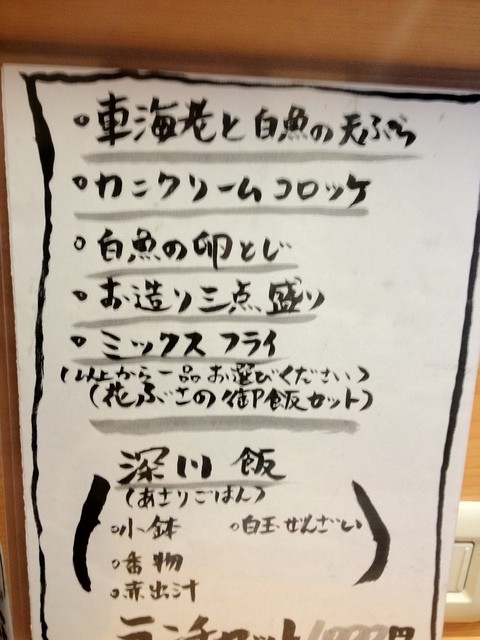 。車海老と白魚の天ぷら
。カニクリームコロッケ
。白魚の卵とじ
。お造り三点盛り
。ミックスフライ
(以上から一品お選びください)
(花ぶさの御飯セット)
深川飯
(あさりごはん)
。小鉢 。白玉ぜんざい
。香物
。赤出汁
ランチセット